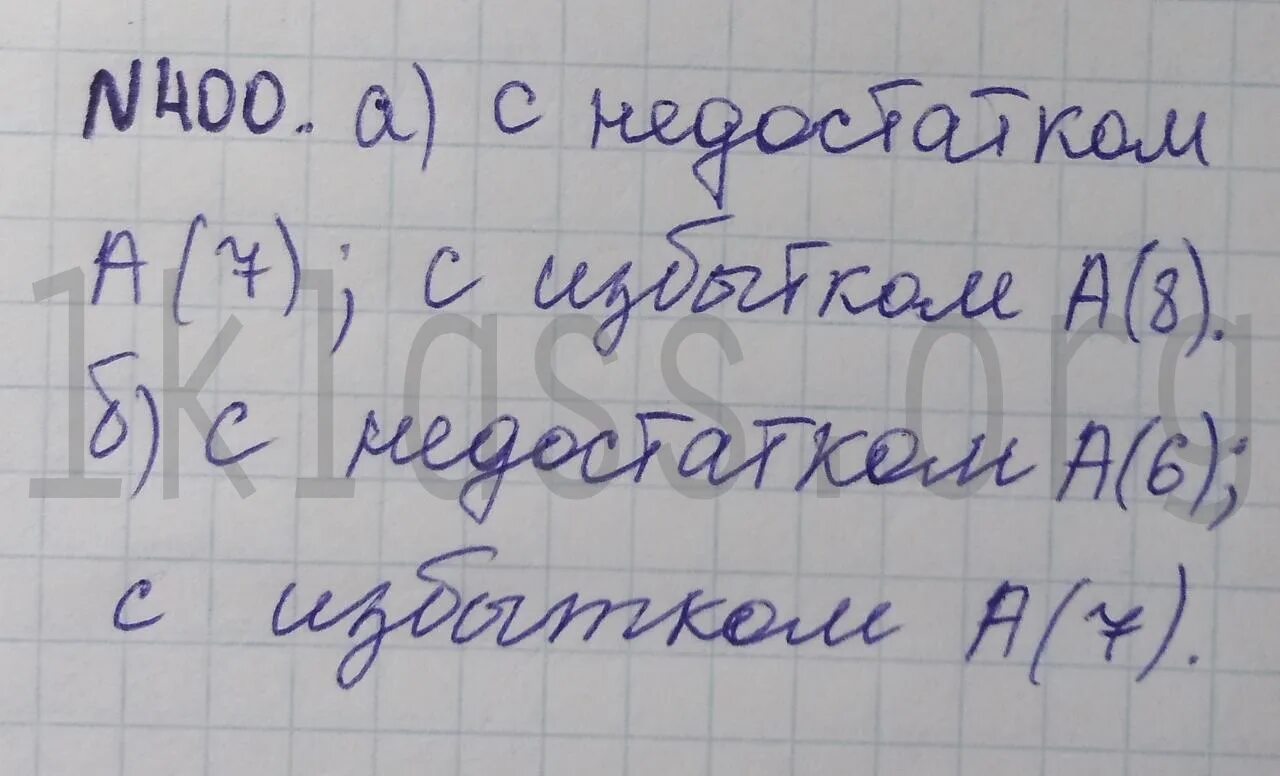 N400. а) с недостатком
А(7); с избытком А(8).
б) с недостатком А(6);
с избытком А(7).
1klass.org